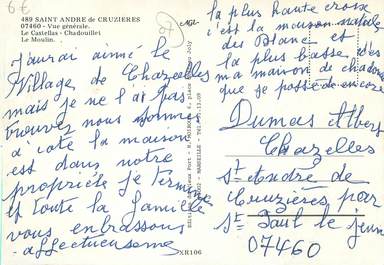 6€
489 SAINT ANDRE de CRUZIERES
07460 - Vue générale.
Le Castellas - Chadouillet
Le Moulin.
J'aurai aimé le
Village de Chazelles
mais je ne l'ai pas
trouvez nous sommes
a coté la maison
est dans notre
propriétée je termine
et toute la famille
vous enbrassons
affectueusement
XR106
la plus haute croix
c'est la maison natale
des Blanc et
la plus basse d'es
ma maison de
que se possède encore
Dumas Albert
Chazelles
St André de
Cruzières par
St Paul le jeune
07460